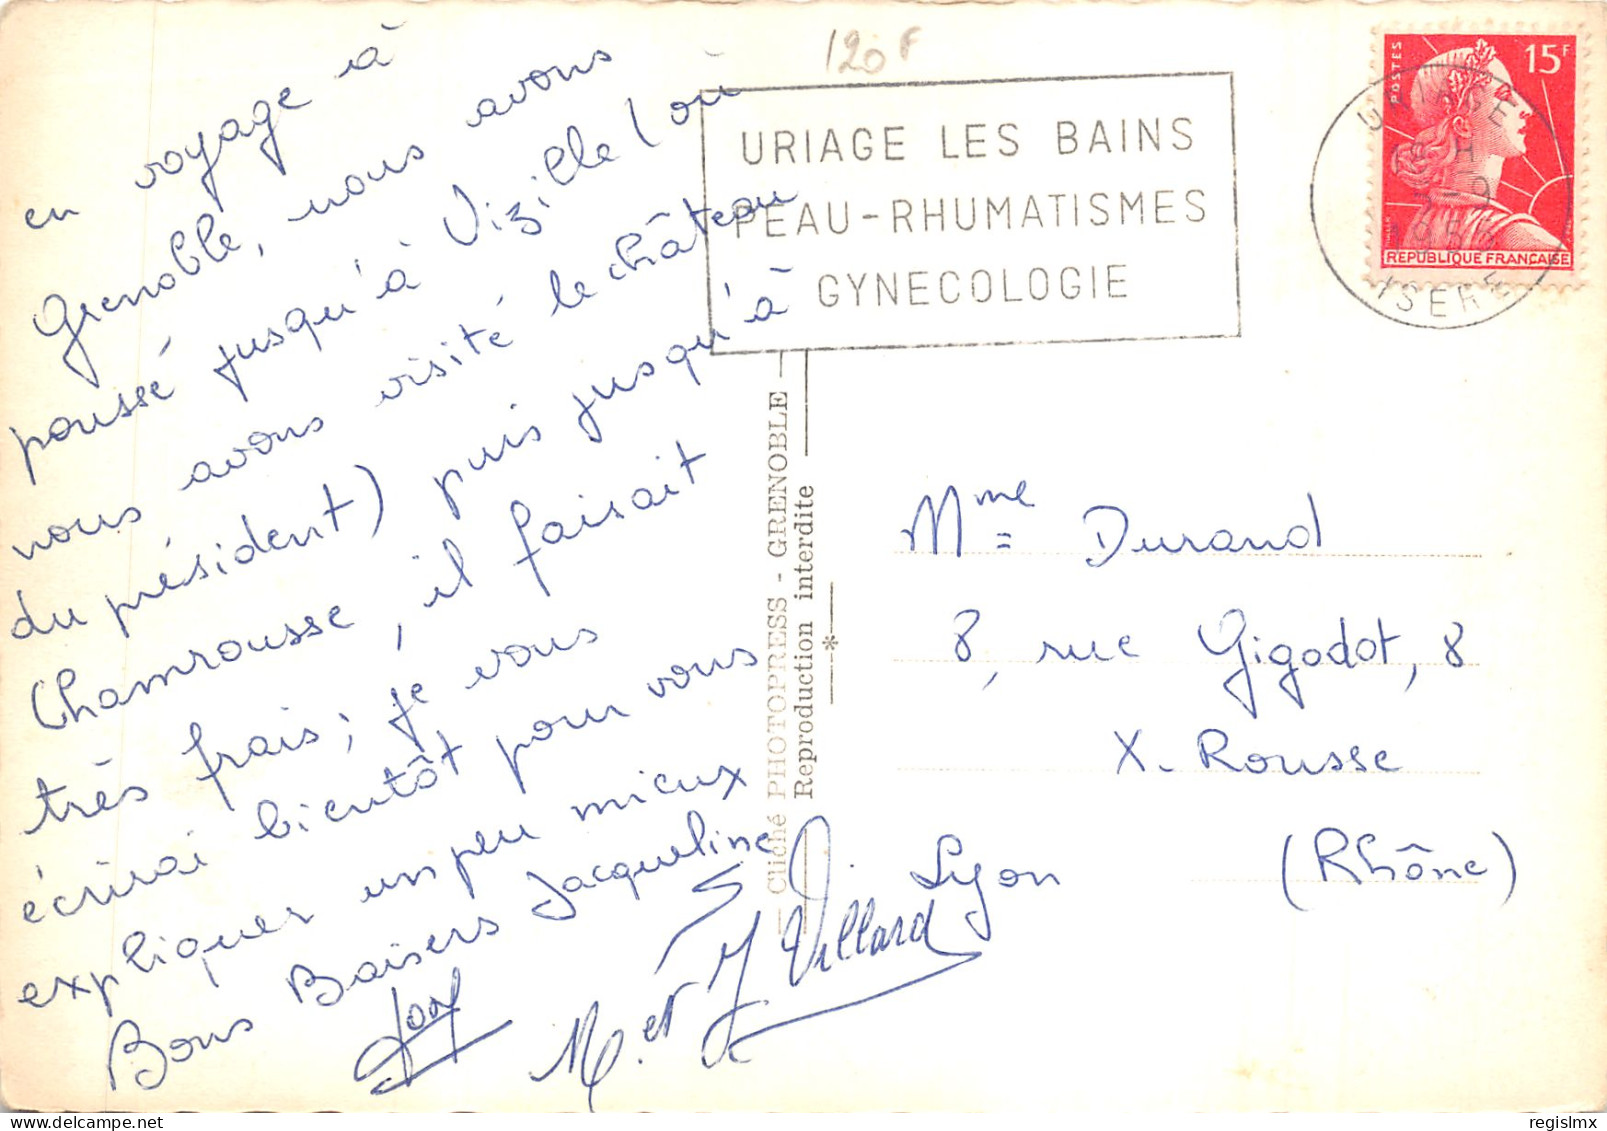 en voyage à
Grenoble, nous avons
poussé jusqu'à Vizille (où
nous avons visité le château
du président) puis jusqu'à
Chamrousse, il faisait
très frais; je vous
écrirai bientôt pour vous
expliquer un peu mieux
Bons Baisers Jacqueline
M. et J Villard
120F
URIAGE LES BAINS
PEAU-RHUMATISMES
GYNECOLOGIE
POSTES
15F
REPUBLIQUE FRANÇAISE
URIAGE
ISERE
Cliché PHOTOPRESS - GRENOBLE
Reproduction interdite
*
Mme Durand
8, rue Gigodot, 8
X. Rousse
Lyon (Rhône)
regislmx